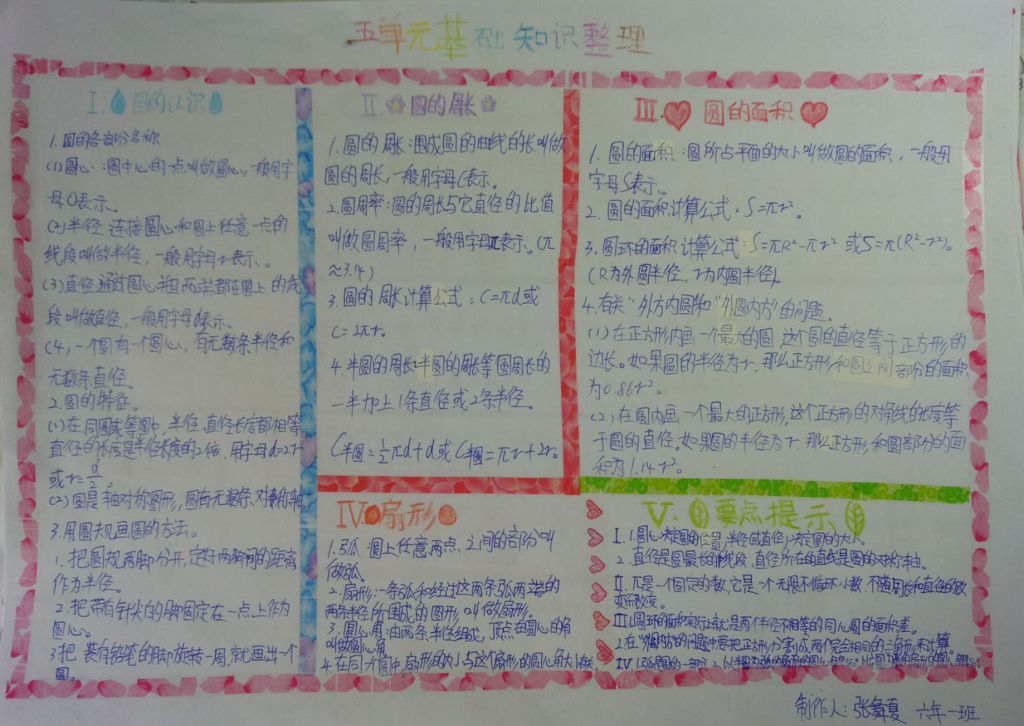 五单元基础知识整理
I. 圆的认识
1.圆的各部分名称
(1)圆心:圆中心的一点叫做圆心,一般用字
母O表示。
(2)半径:连接圆心和圆上任意一点的
线段叫做半径,一般用字母r表示。
(3)直径:通过圆心并且两端都在圆上的线
段叫做直径,一般用字母d表示。
(4)一个圆有一个圆心,有无数条半径和
无数条直径。
2.圆的特征。
(1)在同圆或等圆中,半径、直径长度都相等
直径的长度是半径长度的2倍,用字母d=2r
或r=d/2。
(2)圆是轴对称图形,圆有无数条对称轴
3.用圆规画圆的方法。
1.把圆规两脚分开,定好两脚间的距离
作为半径。
2.把带有针尖的脚固定在一点上作为
圆心。
3把 装有铅笔的脚旋转一周,就画出一个
圆。
II 圆的周长
1.圆的周长:围成圆的曲线的长叫做
圆的周长,一般用字母C表示。
2.圆周率:圆的周长与它直径的比值
叫做圆周率,一般用字母π表示。(π
≈3.14)
3.圆的周长计算公式:C=πd或
C=2πr。
4.半圆的周长:半圆的周长等圆周长的
一半加上1条直径或2条半径。
C半圆=½πd+d或C半圆=πr+2r。
III. 圆的面积
1.圆的面积:圆所占平面的大小叫做圆的面积,一般用
字母S表示。
2.圆的面积计算公式:S=πr²。
3.圆环的面积计算公式:S=πR²-πr² 或S=π(R²-r²)。
(R为外圆半径,r为内圆半径)
4.有关“外方内圆”和“外圆内方”的问题。
(1)在正方形内画一个最大的圆,这个圆的直径等于正方形的
边长。如果圆的半径为r,那么正方形和圆之间部分的面积
为0.86r²。
(2)在圆内画一个最大的正方形,这个正方形的对角线的长度等
于圆的直径。如果圆的半径为r,那么正方形和圆部分的面
积为1.14r²。
IV 扇形
1.弧:圆上任意两点之间的部分叫
做弧。
2.扇形:一条弧和经过这两条弧两端的
两条半径所围成的图形,叫做扇形。
3.圆心角:由两条半径组成,顶点在圆心的角
叫做圆心角
4.在同一个圆中,扇形的大小与这个扇形的圆心角大小有关
V. 要点提示
I. 1.圆心决定圆的位置,半径或直径决定圆的大小。
2.直径是圆最长的线段,直径所在的直线是圆的对称轴。
II. π是一个固定的数,它是一个无限不循环小数,不随周长和直径的改
变而改变。
III.1.圆环的面积实际就是两个半径不相等的同心圆的面积差。
2.在“外圆内方”的问题中要把正方形分割成两个完全相同的三角形来计算
IV.1.弧是圆的一部分
制作人:张舞夏 六年一班